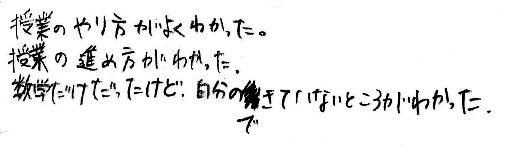 授業のやり方がよくわかった。
授業の進め方がわかった。
数学だけだったけど、自分のできていないところがわかった。